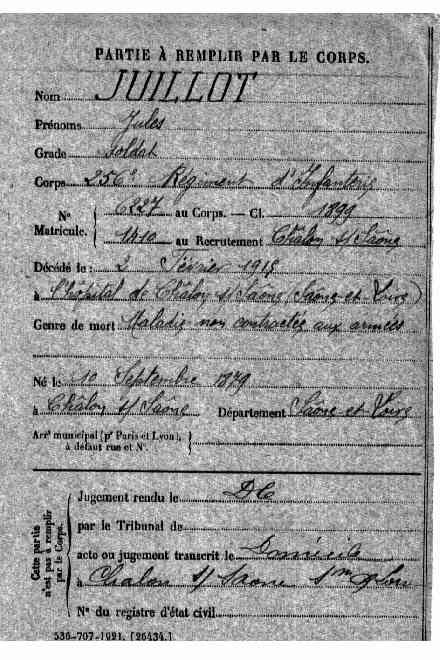 PARTIE À REMPLIR PAR LE CORPS.
Nom JUILLOT
Prénoms Jules
Grade Soldat
Corps 256e Régiment d'Infanterie
N° Matricule. { 6227 au Corps. — Cl. 1899
1410 au Recrutement Châlon s/ Saône
Décédé le : 2 Février 1918
à l'hôpital de Châlon s/ Saône (Saône-et-Loire)
Genre de mort Maladie non contractée aux armées
Né le 10 Septembre 1879
à Châlon s/ Saône Département Saône-et-Loire
Arrt municipal (pr Paris et Lyon), à défaut rue et N°. }
Cette partie n'est pas à remplir par le Corps.
Jugement rendu le DC
par le Tribunal de
acte ou jugement transcrit le Domicile
à Chalon s/ Saone
N° du registre d'état civil
536-707-1921. [26434.]